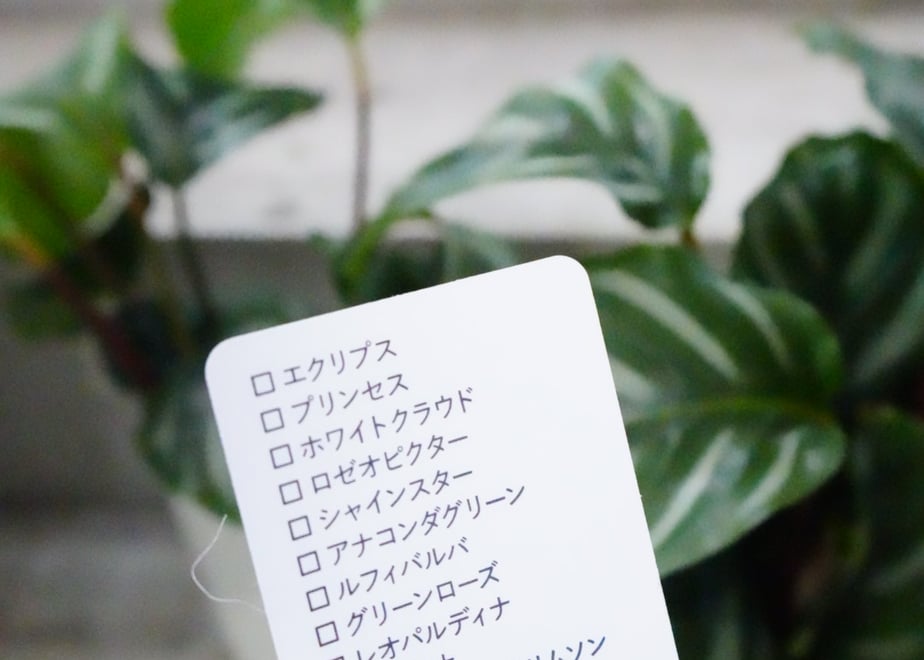 □エクリプス
□プリンセス
□ホワイトクラウド
□ロゼオピクター
□シャインスター
□アナコンダグリーン
□ルフィバルバ
□グリーンローズ
□レオパルディナ